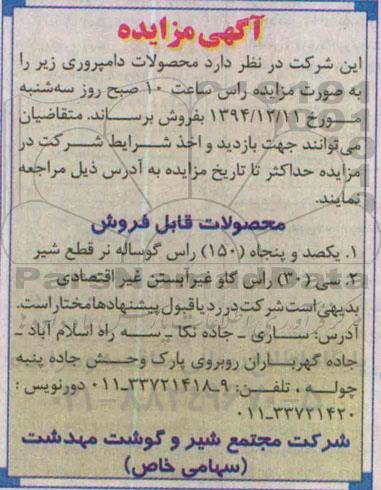 آگهی مزایده
این شرکت در نظر دارد محصولات دامپروری زیر را
به صورت مزایده راس ساعت ۱۰ صبح روز سه‌شنبه
مورخ ۱۳۹۴/۱۲/۱۱ بفروش برساند. متقاضیان
می‌توانند جهت بازدید و اخذ شرایط شرکت در
مزایده حداکثر تا تاریخ مزایده به آدرس ذیل مراجعه
نمایند.
محصولات قابل فروش
۱. یکصد و پنجاه (۱۵۰) راس گوساله نر قطع شیر
۲. سی (۳۰) راس گاو غیرآبستن غیر اقتصادی
بدیهی است شرکت در رد یا قبول پیشنهادها مختار است.
آدرس: ساری ـ جاده نکا ـ سه راه اسلام آباد ـ
جاده گهرباران روبروی پارک وحش جاده پنبه
چوله ، تلفن: ۹ـ۳۳۷۲۱۴۱۸ـ۰۱۱ دورنویس :
۳۳۷۲۱۴۲۰ـ۰۱۱
شرکت مجتمع شیر و گوشت مهدشت
(سهامی خاص)
ParsNamadData